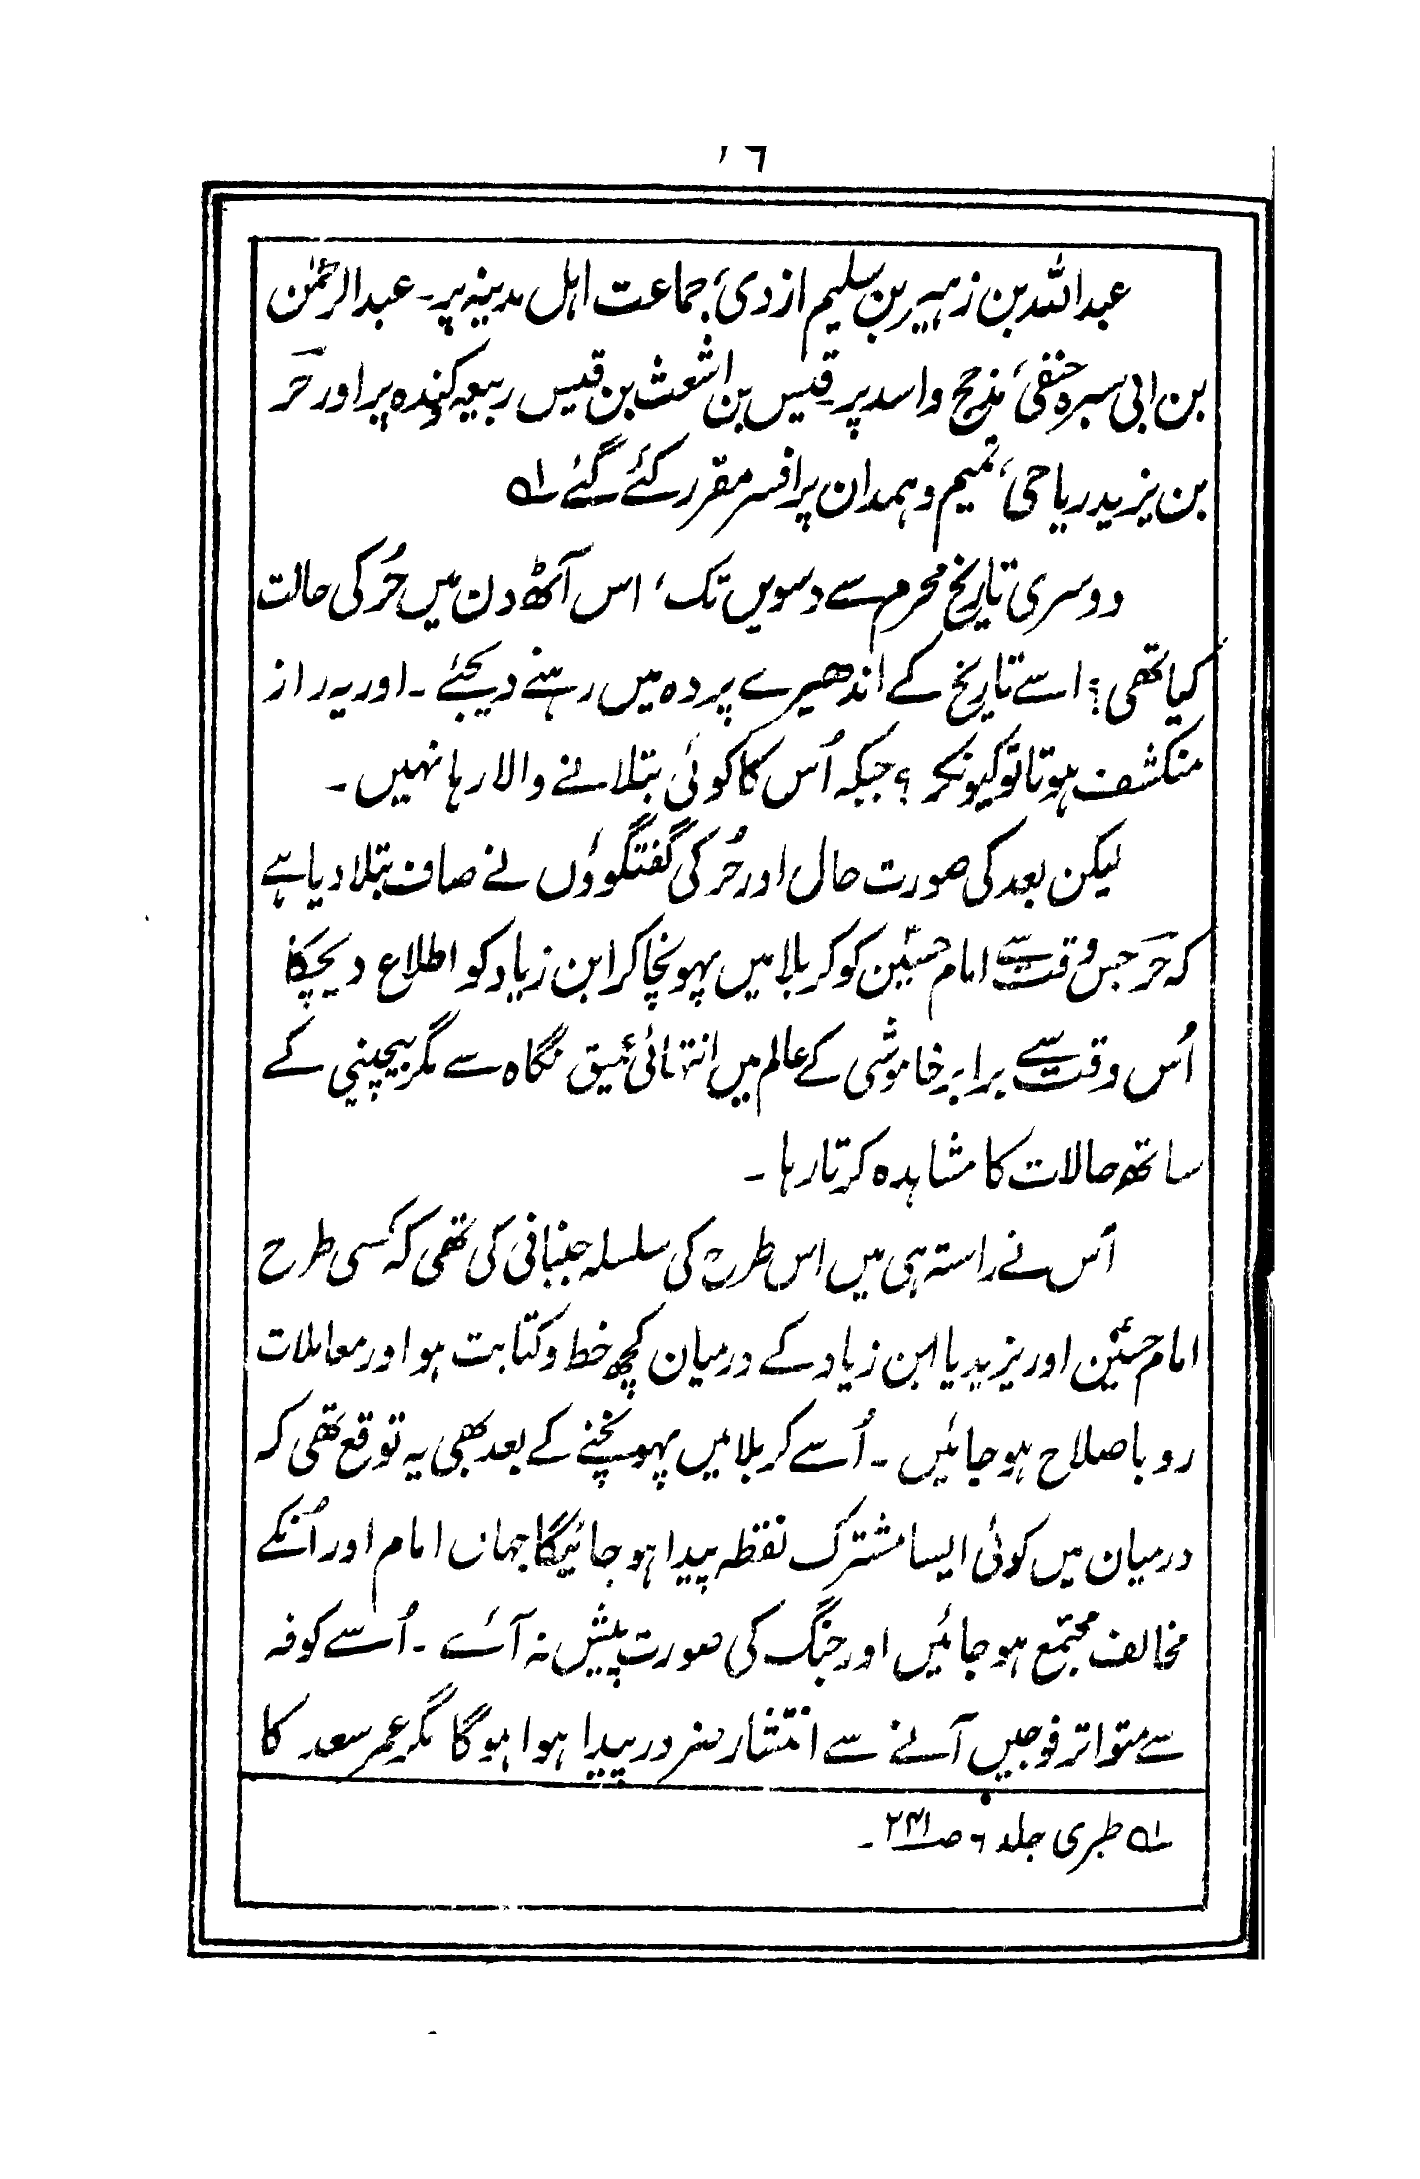 ۱۶
عبداللہ بن زہیر بن سلیم ازدی، جماعت اہل مدینہ پر۔ عبدالرحمٰن
بن ابی سبرہ حنفی، مذحج و اسد پر۔ قیس بن اشعث بن قیس ربیعہ کندہ پر اور حر
بن یزید ریاحی، تمیم و ہمدان پر افسر مقرر کئے گئے ؎۱
دوسری تاریخ محرم سے دسویں تک، اس آٹھ دن میں حُر کی حالت
کیا تھی؟ اسے تاریخ کے اندھیرے پردہ میں رہنے دیجئے۔ اور یہ راز
منکشف ہوتا تو کیونکر؟ جبکہ اُس کا کوئی بتلانے والا رہا نہیں۔
لیکن بعد کی صورت حال اور حُر کی گفتگووں نے صاف بتلا دیا ہے
کہ حر جس وقت سے امام حسینؑ کو کربلا میں پہونچا کر ابن زیاد کو اطلاع دیچکا
اُس وقت سے برابر خاموشی کے عالم میں انتہائی عمیق نگاہ سے مگر بیچینی کے
ساتھ حالات کا مشاہدہ کرتا رہا۔
اُس نے راستہ ہی میں اس طرح کی سلسلہ جنبانی کی تھی کہ کسی طرح
امام حسینؑ اور یزید یا ابن زیاد کے درمیان کچھ خط و کتابت ہو اور معاملات
رو باصلاح ہو جائیں۔ اُسے کربلا میں پہونچنے کے بعد بھی یہ توقع تھی کہ
درمیان میں کوئی ایسا مشترک نقطہ پیدا ہو جائیگا جہاں امام اور اُنکے
مخالف مجتمع ہو جائیں اور جنگ کی صورت پیش نہ آئے۔ اُسے کوفہ
سے متواتر فوجیں آنے سے انتشار ضرور پیدا ہوا ہو گا مگر عمر سعد کا
؎۱ طبری جلد ۶ ص۲۴۱۔